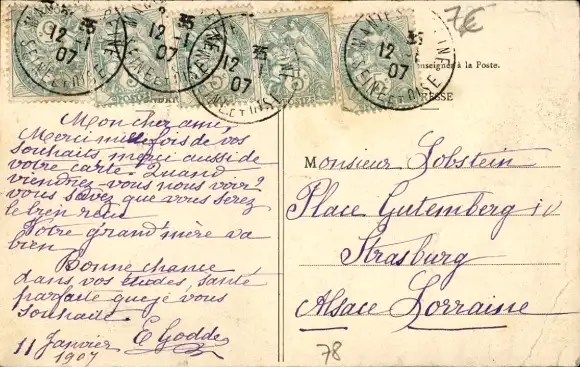 7€
35
12-1
07
SEINE ET OISE
35
12-1
07
SEINE ET OISE
35
12-1
07
SEINE ET OISE
35
12-1
07
SEINE ET OISE
à la Poste.
Mon cher ami,
Merci mille fois de vos
souhaits, merci aussi de
votre carte. Quand
viendrez-vous nous voir?
vous savez que vous serez
le bien reçu
Votre grand'mère va
bien
Bonne chance
dans vos études, santé
parfaite que je vous
souhaite.
E Godde
11 Janvier
1907
Monsieur Lobstein
Place Gutemberg
Strasburg
Alsace Lorraine
78